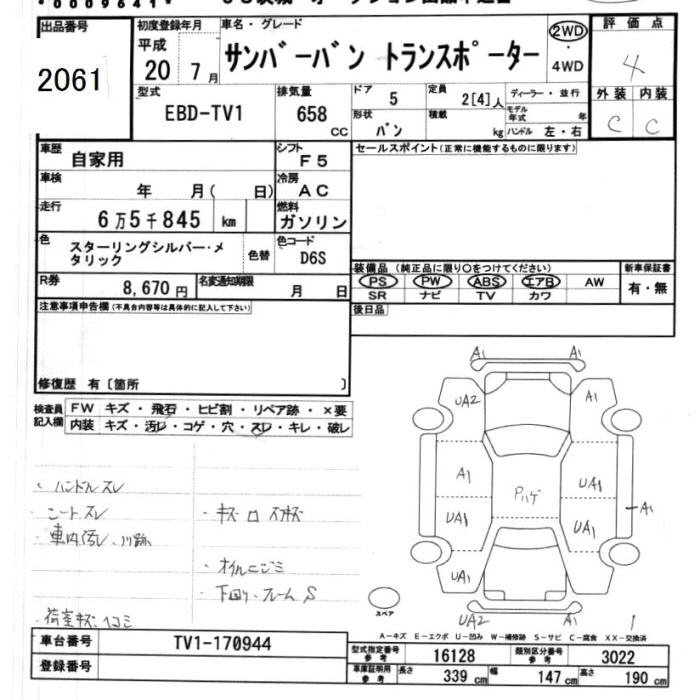 出品番号
2061
初度登録年月
平成
20 7月
車名・グレード
サンバーバン トランスポーター
2WD
・
4WD
評価点
4
外装 内装
C C
型式
EBD-TV1
排気量
658
CC
ドア
5
定員
2[4]人
形状
バン
積載
kg
ディーラー・並行
モデル年式 年
ハンドル 左・右
車歴
自家用
シフト
F5
車検
年 月( 日)
冷房
AC
走行
6万5千845 km
燃料
ガソリン
色
スターリングシルバー・メタリック
色替
色コード
D6S
R券
8,670円
名変通知期限
月 日
セールスポイント(正常に機能するものに限ります)
装備品 (純正品に限り○をつけてください)
PS PW ABS エアB AW
SR ナビ TV カワ
新車保証書
有・無
後日品
注意事項申告欄(不具合内容等は具体的に記入して下さい)
修復歴 有〔箇所 〕
検査員記入欄
FW キズ・飛石・ヒビ割・リペア跡・×要
内装 キズ・汚レ・コゲ・穴・スレ・キレ・破レ
・ハンドルスレ
・シートスレ
・車内汚レ
・オイルニジミ
・下回り・フレームS
A1
UA2
A1
A1
UA1
UA1
Pハゲ
UA1
UA1
A1
UA1
UA2
A1
スペア
A-キズ E-エクボ U-凹み W-補修跡 S-サビ C-腐食 XX-交換済
車台番号
TV1-170944
登録番号
型式指定番号
参考
16128
類別区分番号
参考
3022
車庫証明用
参考
長さ 339 cm
幅 147 cm
高さ 190 cm